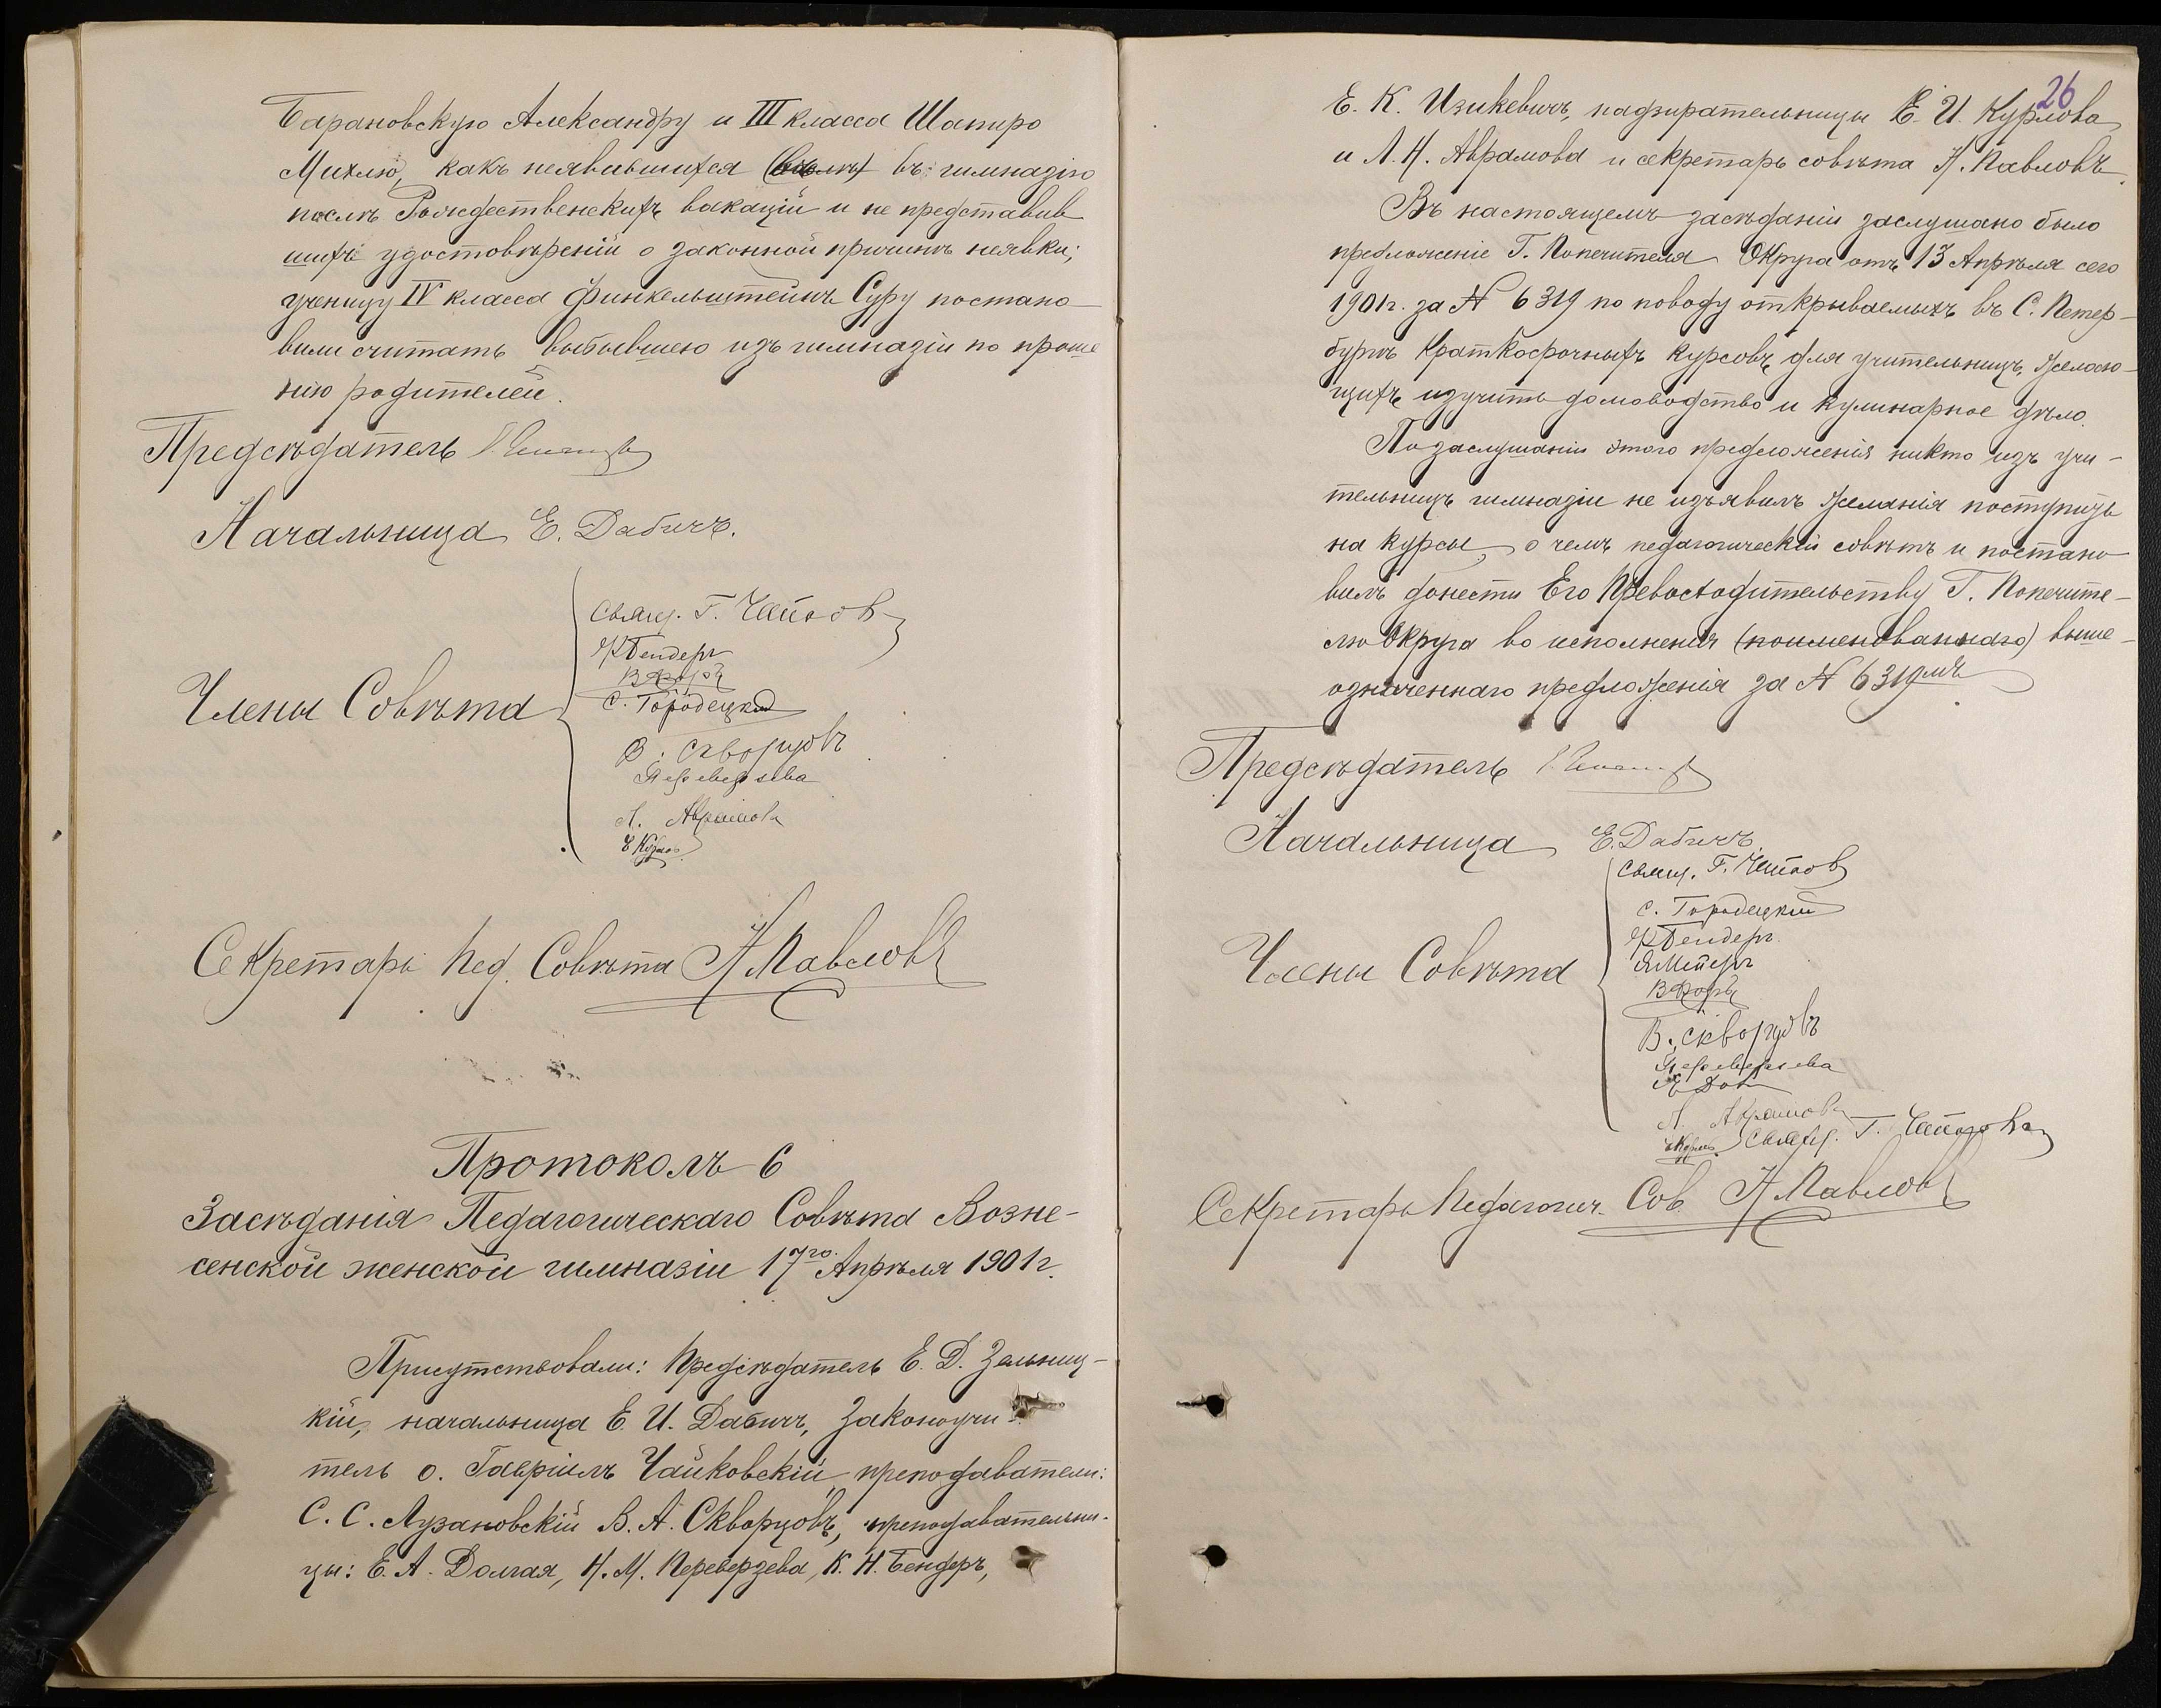 Барановскую Александру и III класса Шапиро
Михлю, какъ неявившихся въ гимназію
послѣ Рождественскихъ вакацій и не представив
шихъ удостовѣреній о законной причинѣ неявки;
ученицу IV класса Финкельштейнъ Суру постано-
вили считать выбывшею изъ гимназіи по проше
нію родителей.
Предсѣдатель
Начальница Е. Дабичъ.
Свящ. Г. Чайков
К Бендеръ
С. Городецкій
Члены Совѣта
В. Скворцовъ
Переверзева
Л. Аврамова
Секретарь Пед. Совѣта Н Павловъ
Протоколъ 6
Засѣданія Педагогическаго Совѣта Возне-
сенской женской гимназіи 17го Апрѣля 1901г.
Присутствовали: Предсѣдатель Е. Д. Зельниц-
кій, начальница Е. И. Дабичъ, Законоучи-
тель о. Гавріилъ Чайковскій, преподаватели:
С. С. Лузановскій В. А. Скворцовъ, преподавательни-
цы: Е. А. Долгая, Н. М. Переверзева, К. Н. Бендеръ,
26
Е. К. Изикевичъ, надзирательницы Е. И. Курлова
и Л. Н. Аврамова и секретарь совѣта Н. Павловъ.
Въ настоящемъ засѣданіи заслушано было
предложеніе Г. Попечителя Округа отъ 13 Апрѣля сего
1901г. за № 6319 по поводу открываемыхъ въ С. Петер-
бургѣ Краткосрочныхъ курсовъ для учительницъ, желаю-
щихъ изучить домоводство и кулинарное дѣло.
По заслушаніи этого предложенія никто изъ учи-
тельницъ гимназіи не изъявилъ желанія поступить
на курсы, о чемъ педагогическій совѣтъ и постано-
вилъ донести Его Превосходительству Г. Попечите-
лю Округа во исполненія (поименованнаго) выше-
означеннаго предложенія за № 6319мъ
Предсѣдатель
Начальница Е. Дабичъ.
Свящ. Г. Чайков
С. Городецкій
К Бендеръ
Члены Совѣта
В. Скворцовъ
Переверзева
Л. Аврамова
Свящ. Г.
Секретарь Педагогич. Сов. Н Павловъ